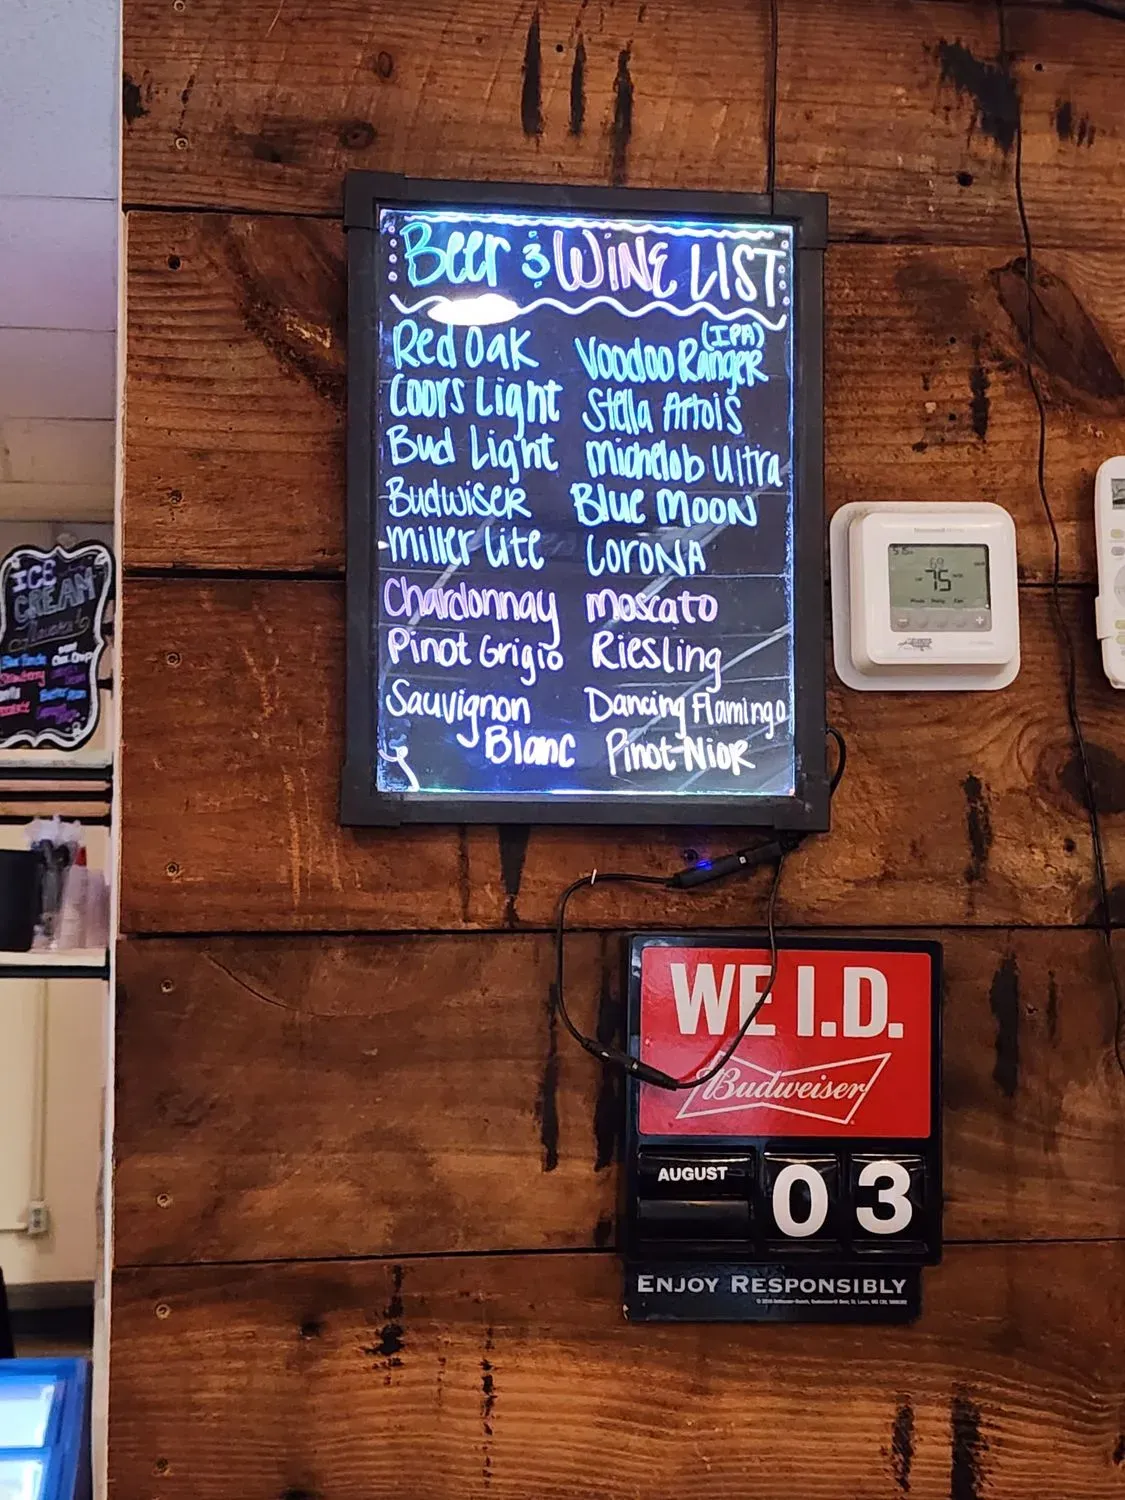 Beer & WINE LIST
Red Oak
Coors Light
Bud Light
BudwiseR
Miller Lite
Chardonnay
Pinot Grigio
Sauvignon
Blanc
(IPA)
Voodoo Ranger
Stella Artois
Michelob Ultra
Blue MOON
CORONA
Moscato
Riesling
Dancing Flamingo
Pinot-Nior
ICE
CREAM
Strawberry
75
WE I.D.
Budweiser
AUGUST
03
ENJOY RESPONSIBLY